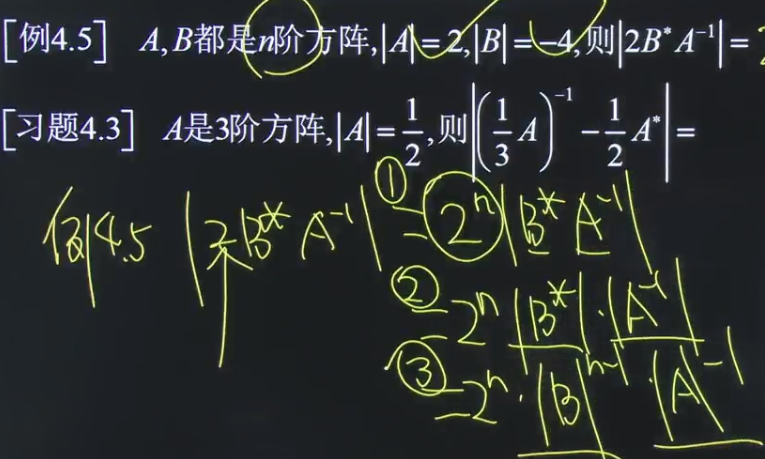 [例4.5] A,B都是n阶方阵,|A|=2,|B|=-4,则|2B*A⁻¹|=
[习题4.3] A是3阶方阵,|A|=1/2,则|(1/3 A)⁻¹-1/2 A*|=
例4.5 |2B* A⁻¹| ①= 2ⁿ|B* A⁻¹|
②= 2ⁿ |B*|·|A⁻¹|
③= 2ⁿ·|B|ⁿ⁻¹·|A|⁻¹